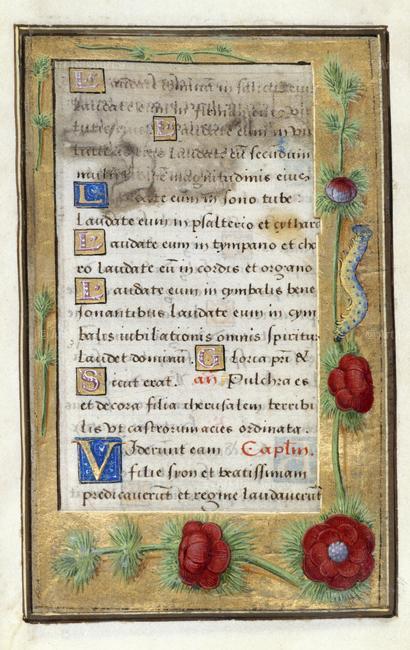 Laudate dominum in sanctis eius
Laudate eum in firmamento
virtutis eius Laudate eum in vir
tutibus Laudate eũ secundum
multitudinẽ magnitudinis eius
Laudate eum in sono tube
laudate eum in psalterio et cythara
Laudate eum in tympano et cho
ro laudate eũ in cordis et organo
Laudate eum in cymbalis bene
sonantibus laudate eum in cym
balis iubilationis omnis spiritus
laudet dominũ. Gloria pr̃i &
Sicut erat. an̄ Pulchra es
et decora filia iherusalem terribi
lis vt castrorum acies ordinata.
Viderunt eam Captm̄.
filie syon et beatissimam
predicauerũt et regine laudauerũt